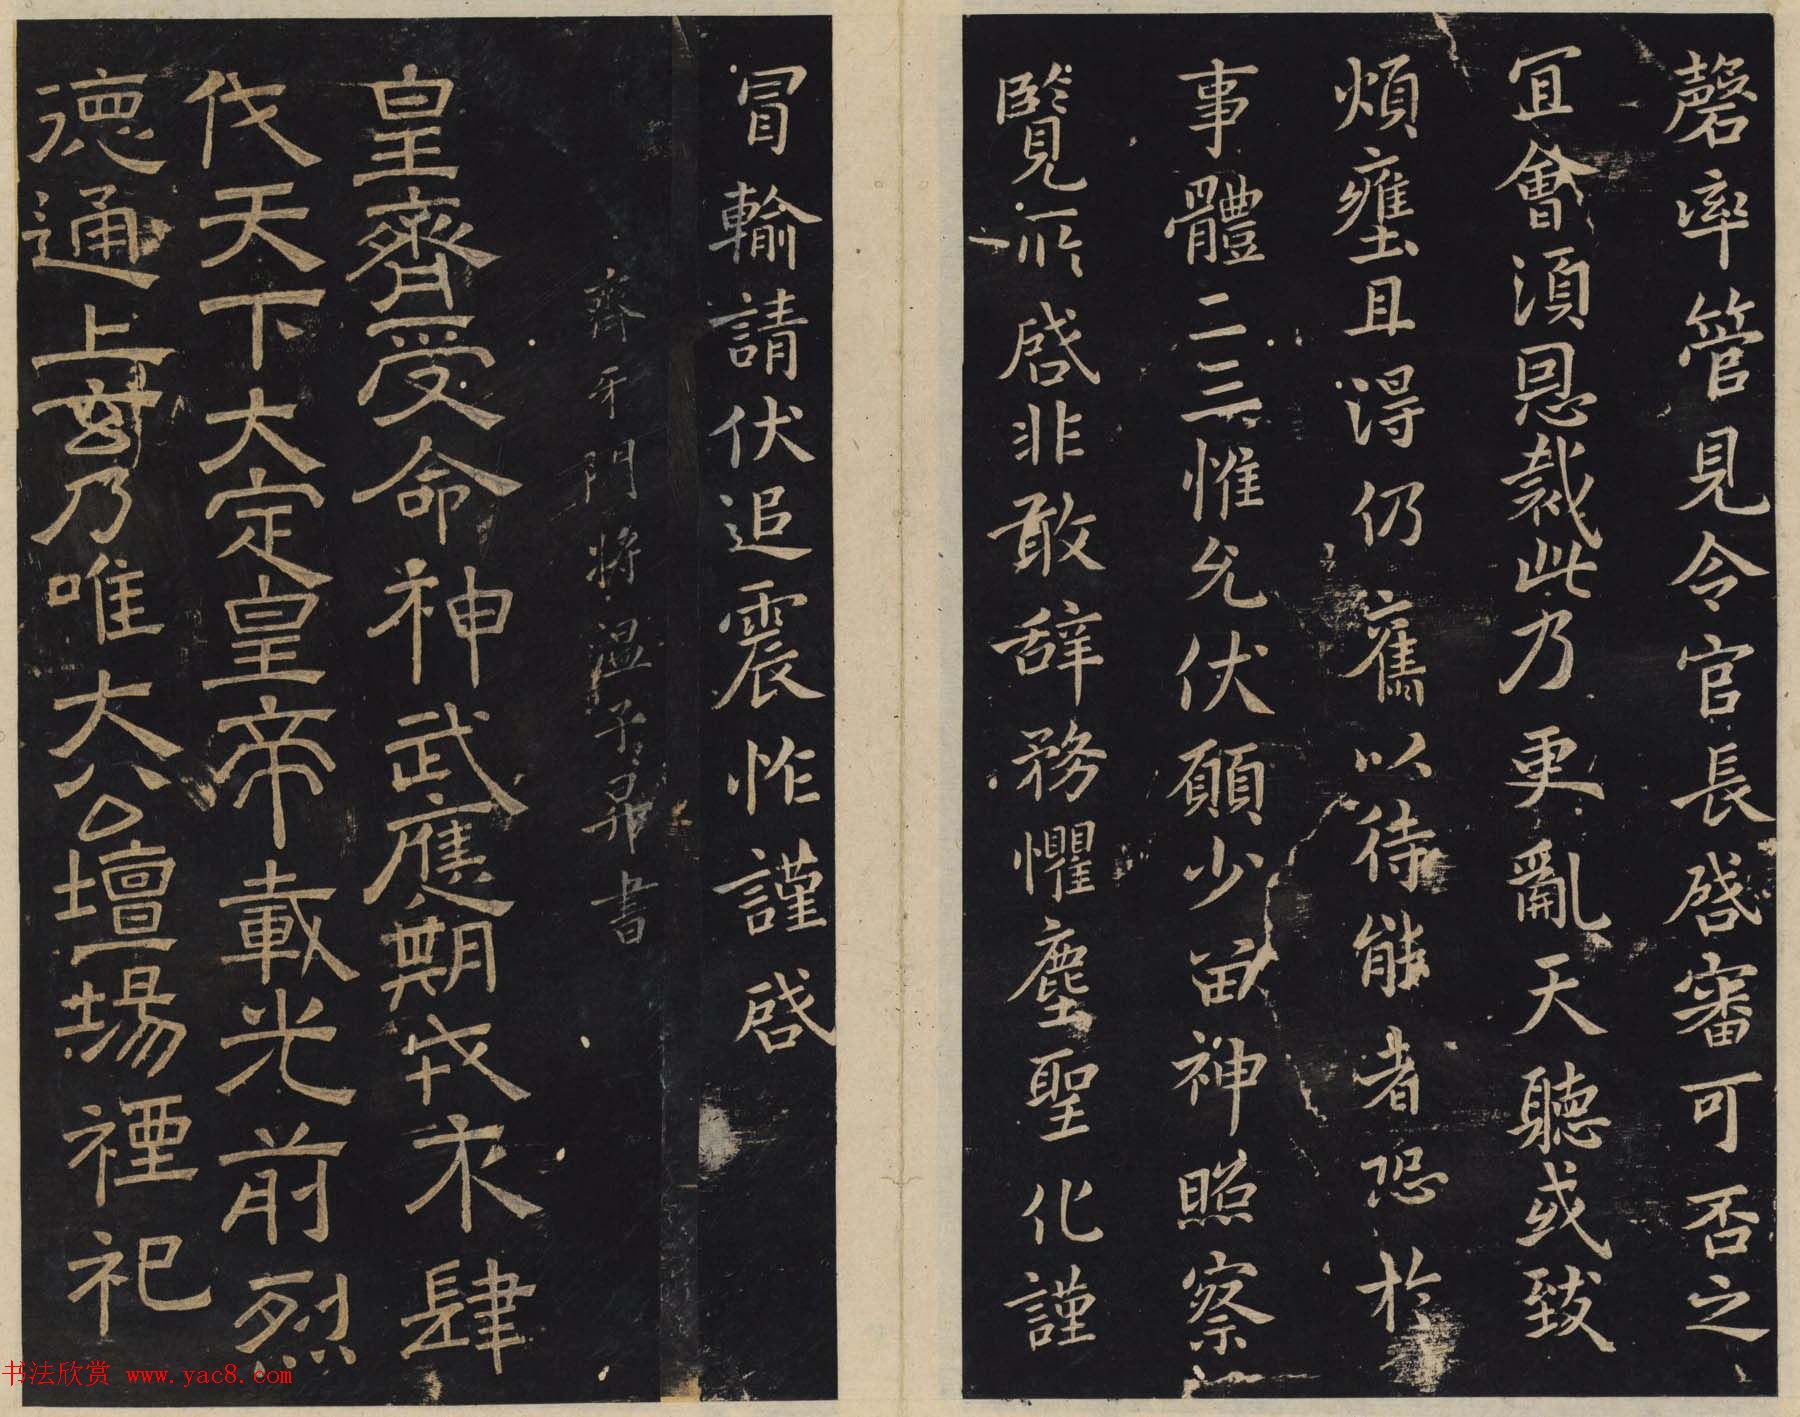 罄率管見令官長啓審可否之
宜會須恩裁此乃更亂天聽或致
煩壅且得仍舊以待能者恐於
事體二三惟允伏願少留神照察
覽所啓非敢辞務懼塵聖化謹
冒輸請伏追震怍謹啓
齊牙門將温子昇書
皇齊受命神武應期伐木肆
伐天下大定皇帝載光前烈
德通上乃唯大公壇場禋祀
书法欣赏 www.yac8.com